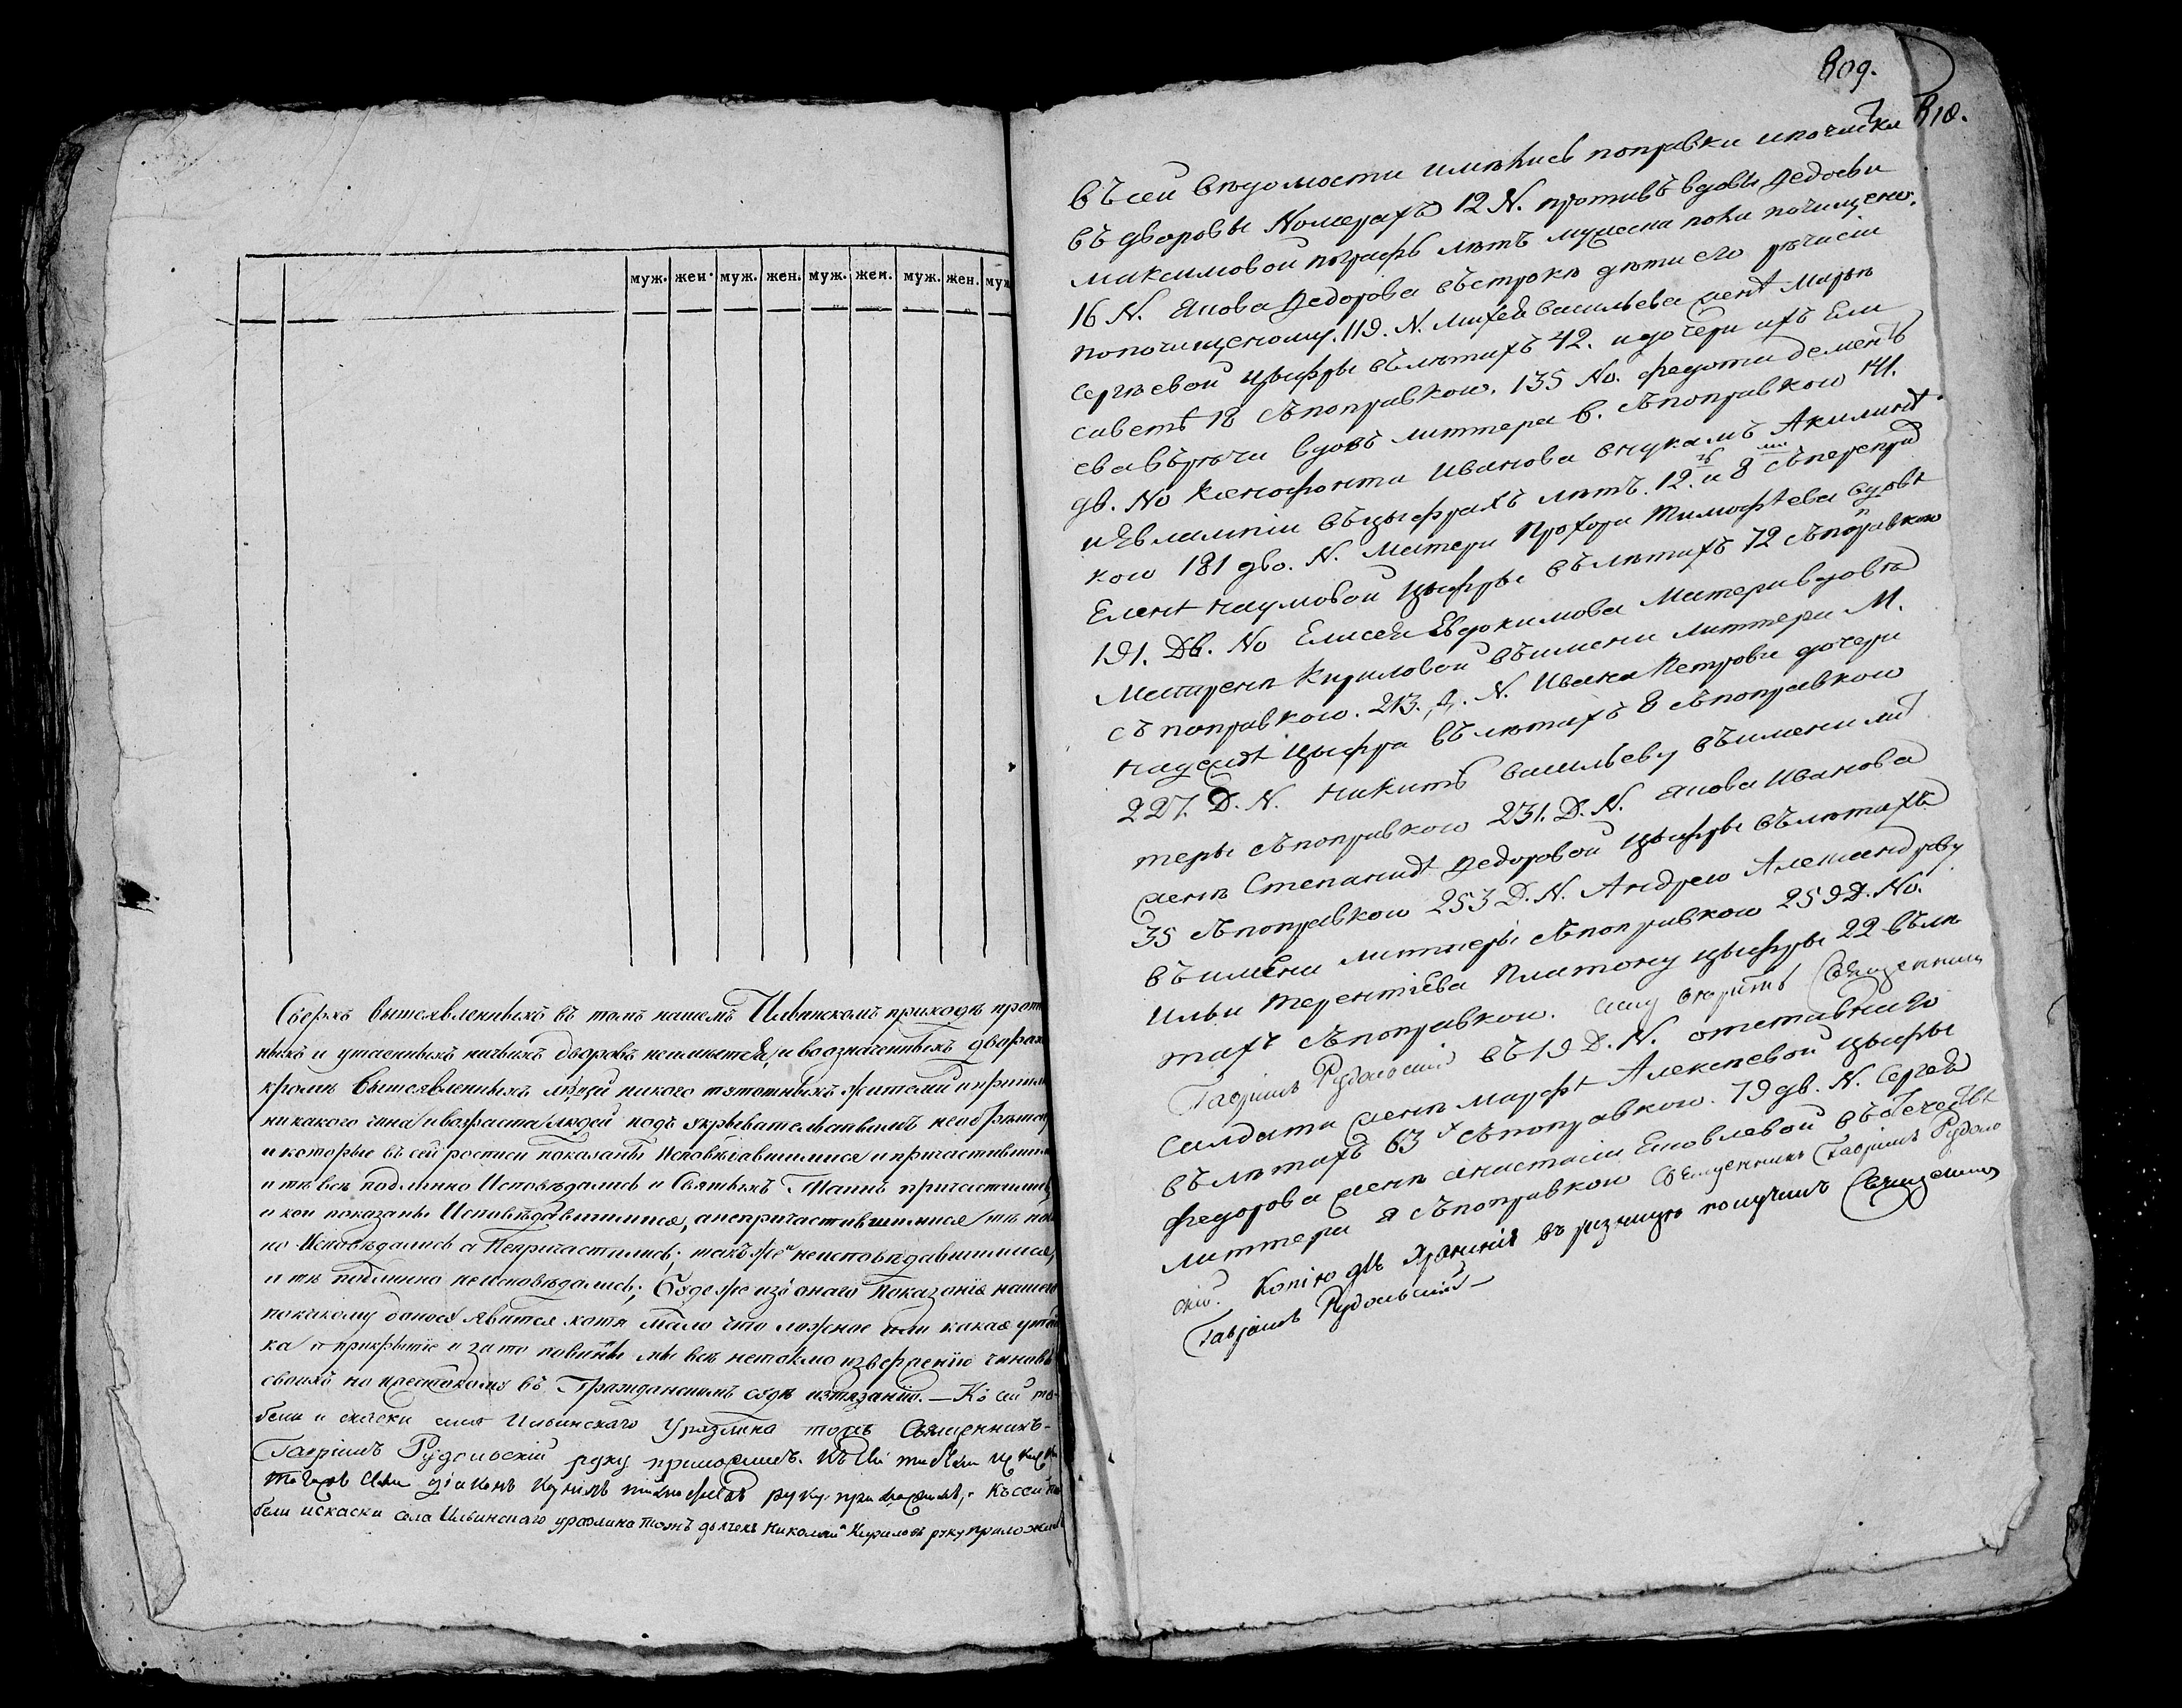 муж. жен. муж. жен. муж. жен. муж. жен. муж
Сверхъ вышеявленныхъ въ томъ нашемъ Ильинскомъ приходѣ проти
ныхъ и утаенныхъ ничьихъ дворовъ неимѣется, и во означенныхъ дворах
кромѣ вышеявленныхъ людей никого тутошныхъ жителей и пришлы
никакого чина и возраста людей подъ укрывательствомъ необрѣтает
и которые въ сей росписи показаны Исповѣдавшимися и причастившими
и тѣ всѣ подлинно Исповѣдались и Святыхъ Таинъ причастились
и кои показаны Исповѣдавшимися, а непричастившимися, тѣ под
но Исповѣдались а Непричастились; такъ же и неисповѣдавшимися,
и тѣ подлинно неисповѣдались; Буде же изъ онаго показанія нашего
по чьему доносу явится хотя мало что ложное или какая утай
ка и прикрытіе и за то повинны мы всѣ не токмо изверженію чиновъ
своихъ но и жестокому въ Гражданскомъ судѣ истязанію. — Къ сей та-
бели и скаски села Ильинскаго Уразлина тожъ Священникъ-
Гавріилъ Рудольскій руку приложилъ. Къ сей табели
діаконъ руку приложилъ. Къ сей та
бели искаски села Ильинскаго уразлина тожъ дьячекъ Николай Кириловъ руку приложилъ
809.
810.
Въ сей вѣдомости имѣлись поправки и почистки
въ дворовы Номерахъ 12 N. противъ вдовы Федосьи
Максимовой въ графѣ лѣтъ мужеска пола почищено.
16 N. Якова Федорова въ строкѣ дѣти его рѣчисіи
попочищеному. 119. N. Михея Васильева женѣ Марьѣ
Сергѣевой цыфры въ лѣтахъ 42. и дочери ихъ Ели
саветѣ 18 съ поправкою. 135 No. Федота Демень
ева въ рѣчи вдовъ литтера в. съ поправкою 141.
дв. No Ксенофонта Иванова внукамъ Акилинѣ
и Евлампіи въ цыфрахъ лѣтъ. 12. и 8 съ переправ
кою 181 дво. N. Матери Прохора Тимофѣева вдовѣ
Еленѣ Наумовой цыфры въ лѣтахъ 72 съ поправкою
191. Дв. No Елисея Евдокимова Матери вдовѣ
Матренѣ Кириловой въ имени литтера М.
съ поправкою. 213. Д. N. Ивана Петрова дочери
Надеждѣ цыфра въ лѣтахъ 8 съ поправкою
227. Д. N. Никитѣ Васильеву въ имени лит
теры съ поправкою 231. Д. N. Якова Иванова
женѣ Степанидѣ Федоровой цыфры въ лѣтахъ
35 съ поправкою 253 Д. N. Андрею Александрову
въ имени литтеры съ поправкою 259 Д. No.
Ильи Терентіева Платону цыфры 22 въ лѣ
тахъ съ поправкою. Священникъ
Гавріилъ Рудольскій въ 19 Д. N. отставнаго
Салдата женѣ Марфѣ Алексѣевой цыфры
въ лѣтахъ 63 съ поправкою. 79 дв. N. Сергея
Федорова женѣ Анастасіи Яковлевой въ отечествѣ
литтера я съ поправкою Священникъ Гавріилъ Рудоль
скій. Копію для Храненія въ ризницу получилъ Священникъ
Гавріилъ Рудольскій